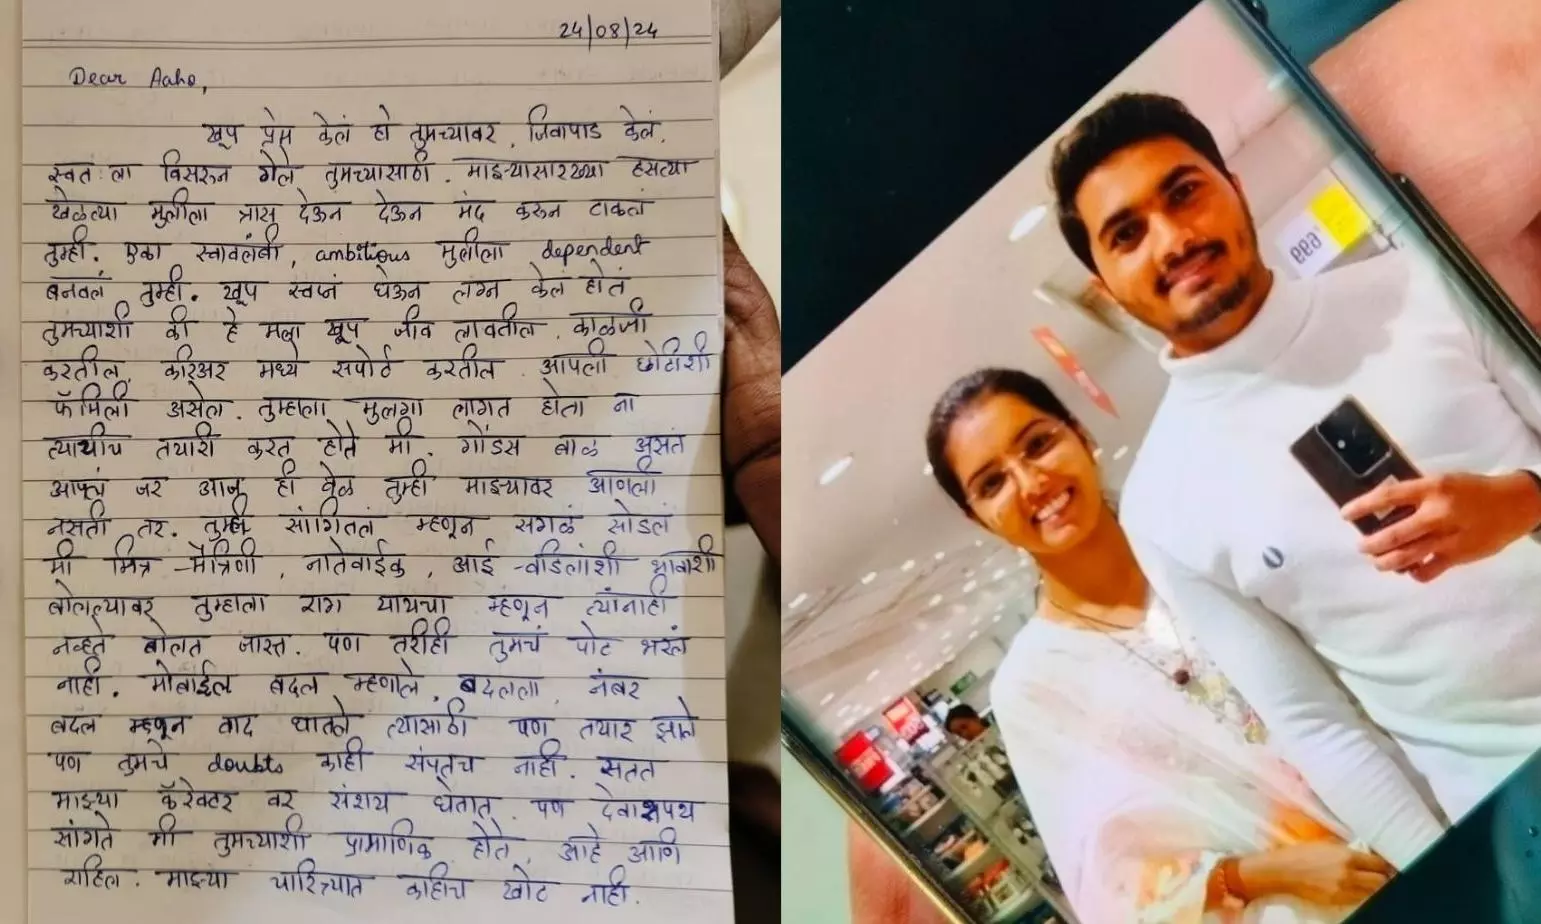 24/08/24
Dear Aaho,
खूप प्रेम केलं हो तुमच्यावर, जिवापाड केलं.
स्वतःला विसरून गेले तुमच्यासाठी. माझ्यासारख्या हसत्या
खेळत्या मुलीला त्रास देऊन देऊन मंद करून टाकलं
तुम्ही. एका स्वावलंबी, ambitious मुलीला dependent
बनवलं तुम्ही. खूप स्वप्नं घेऊन लग्न केलं होतं
तुमच्याशी की हे मला खूप जीव लावतील, काळजी
करतील, करिअर मध्ये सपोर्ट करतील. आपली छोटीशी
फॅमिली असेल. तुम्हाला मुलगा लागत होता ना
त्याचीच तयारी करत होते मी. गोंडस बाळ असतं
आपलं जर आज ही वेळ तुम्ही माझ्यावर आणली
नसती तर. तुम्ही सांगितलं म्हणून सगळं सोडलं
मी मित्र-मैत्रिणी, नातेवाईक, आई-वडिलांशी भावाशी
बोलल्यावर तुम्हाला राग यायचा म्हणून त्यांनाही
नव्हते बोलत जास्त. पण तरीही तुमचं पोट भरलं
नाही. मोबाईल बदल म्हणाले, बदलला, नंबर
बदल म्हणून वाद घातले त्यासाठी पण तयार झाले
पण तुमचे doubts काही संपतच नाही. सतत
माझ्या कॅरेक्टर वर संशय घेतात. पण देवाशपथ
सांगते मी तुमच्याशी प्रामाणिक होते, आहे आणि
राहिल. माझ्या चारित्र्यात काहीच खोट नाही.